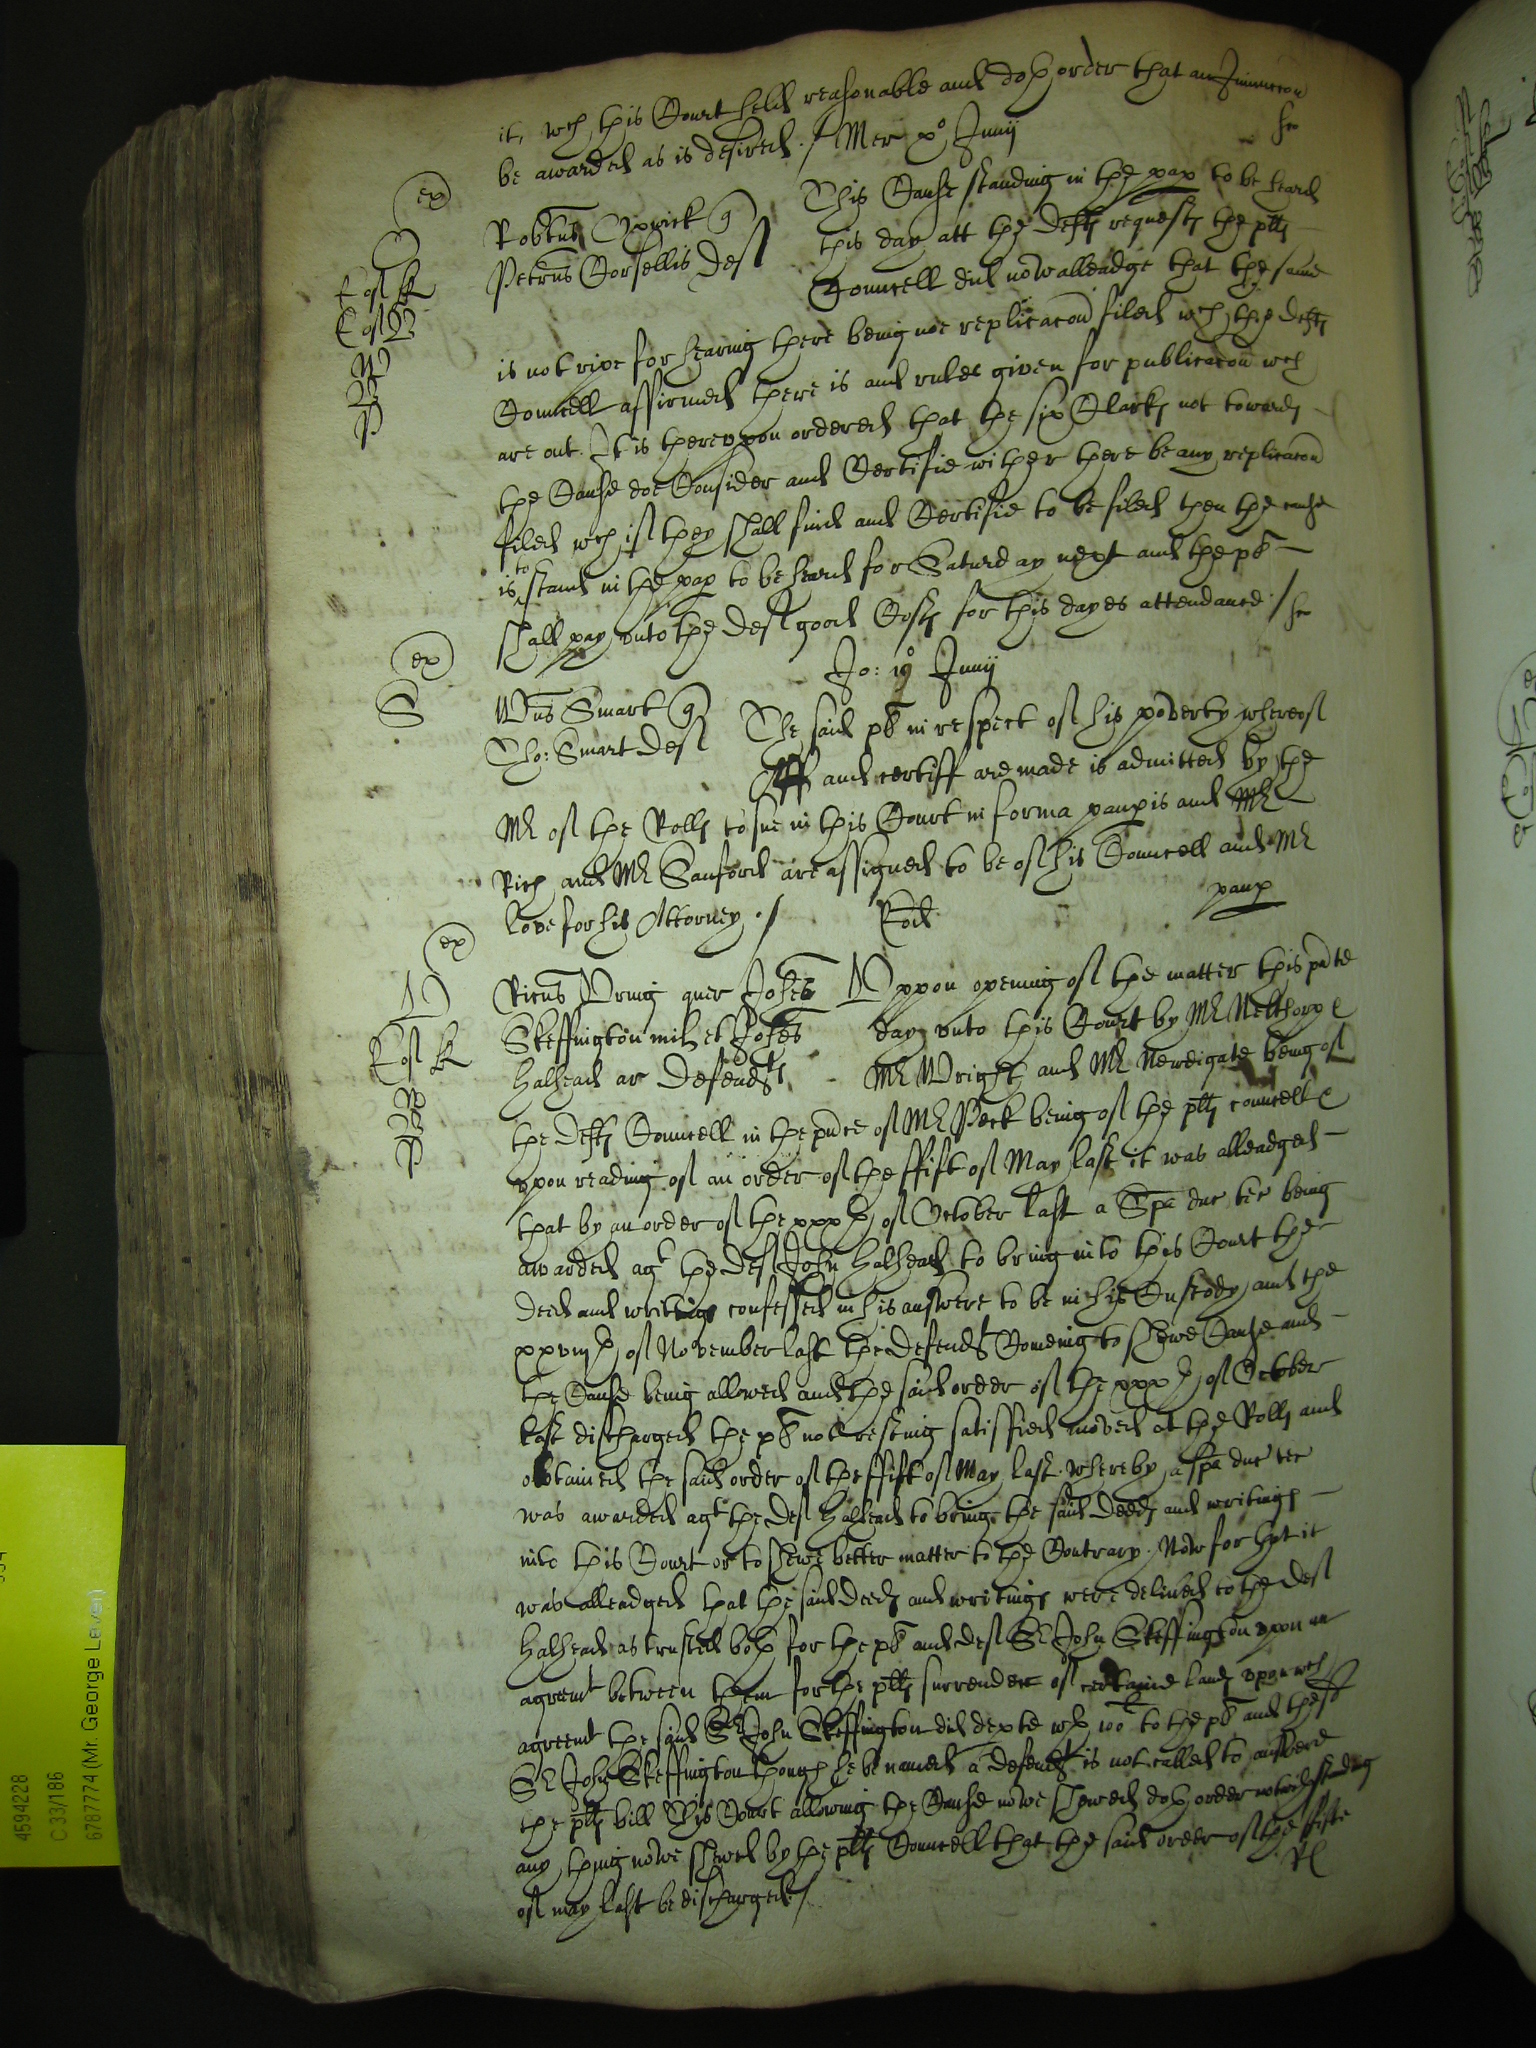 it, wch this Court held reasonable and doth order that an Iniunccon
be awarded as is desired ./ Mer xo Junij
ex
Robtus Oxwick q
Petrus Corsellis def
This Cause standing in the pap to be heard
this day att the defts request the plts
Councell did now alleadge that the same
is not ripe for hearing there being noe replicacon filed wch the defts
Councell affirmed there is and rules given for publicacon wch
are out. It is therevpon ordered that the six Clarks not towards
the Cause doe Consider and Certifie wither there be any replicacon
filed wch if they shall find and Certifie to be filed then the cause
is to stand in the pap to be heard for Saturday next and the pl
shall pay vnto the def good Costs for this dayes attendance /
Jo: 19o Junij
ex
S
Wms Smart q
Tho: Smart def
The said pl in respect of his poverty whereof
Aff and certiff are made is admitted by the
Mr of the Rolls to sue in this Court in forma paupis and Mr
Rich and Mr Sanford are assigned to be of his Councell and Mr
love for his Attorney ./
Eod
paup
ex
Ricus Vring quer Johes
Skeffington miles et Johes
Halhead ar Defendts
Vppon opening of the matter this pnte
day vnto this Court by Mr Nelthorp
Mr Wright and Mr Newdigate being of
the defts Councell in the pnce of Mr Peck being of the plts councell
vpon reading of an order of the ffift of May last it was alleadged
that by an order of the xxxth of October last a Spa duc tec being
awarded agt the def John Halhead to bring into this Court the
deed and writings confessed in his answere to be in his Custody and the
xxviijth of November last the defendt Comeing to shewe Cause and
the Cause being allowed and the said order of the xxxth of October
last discharged the pl not resting satisfied moved at the Rolls and
obtained the said order of the ffift of May last whereby a spa duc tec
was awarded agt the def Halhead to bring the said deeds and writings
into this Court or to shewe better matter to the Contrary. Now for that it
was alleadged that the said deeds and writings were delivred to the def
Halhead as trusted both for the pl and def Sr John Skeffington vpon an
agreemt between them for the plts surrender of certaine lands vpon wch
agreemt the said Sr John Skeffington did depte wth 100l to the pl and the sd
Sr John Skeffington though he be named a defendt is not called to answere
the plts bill This Court allowing the Cause nowe shewed doth order notwithstanding
any thing nowe shewed by the plts Councell that the said order of the fifte
of may last be discharged /
4594228
C 33/186
6787774 (Mr. George Leven)